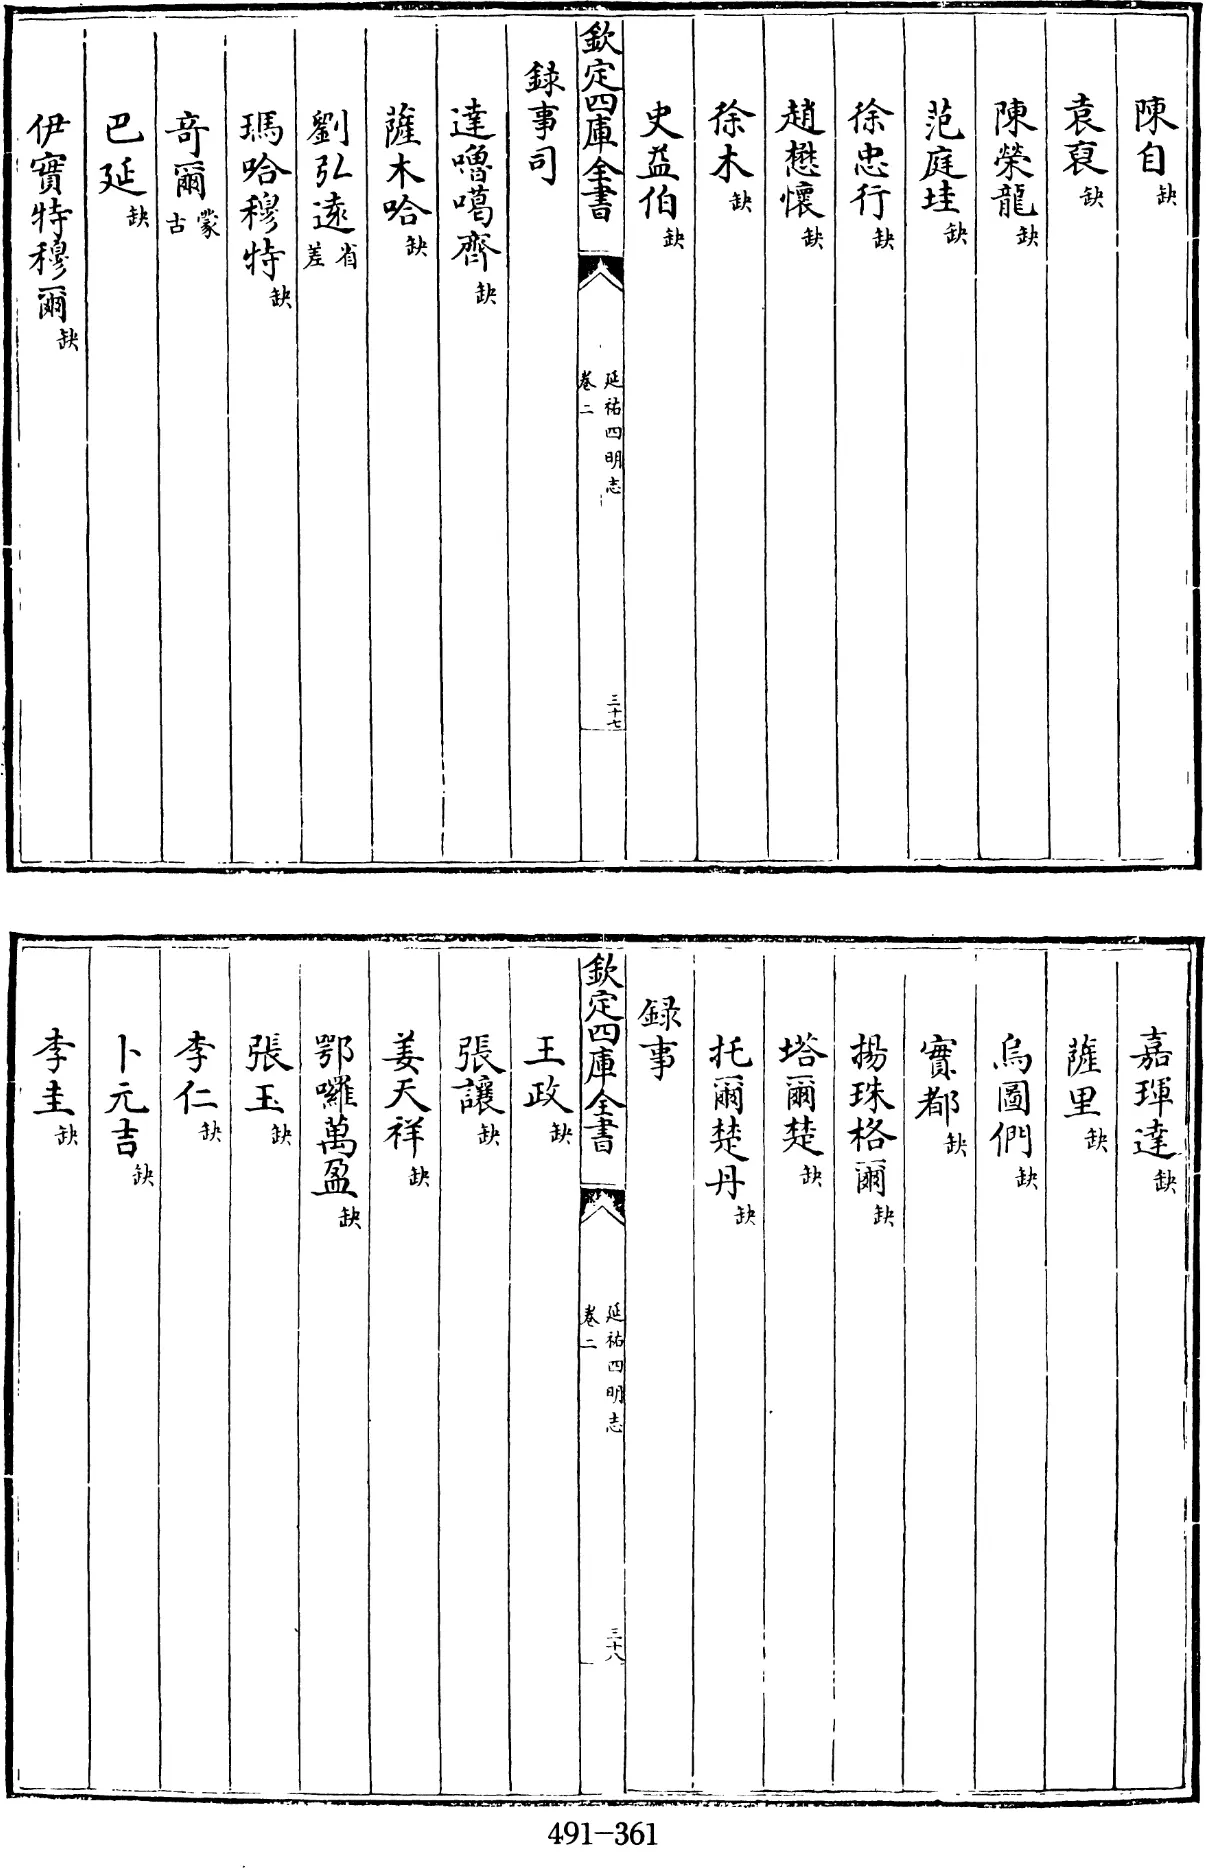 陳自缺
袁裒缺
陳榮龍缺
范庭珪缺
徐忠行缺
趙懋懷缺
徐木缺
史益伯缺
欽定四庫全書
延祐四明志
卷二
三十七
録事司
達嚕噶齊缺
薩木哈缺
劉弘遠省差
瑪哈穆特缺
竒爾蒙古
巴延缺
伊實特穆爾缺
嘉琿達缺
薩里缺
烏圖們缺
實都缺
揚珠格爾缺
塔爾楚缺
托爾楚丹缺
録事
欽定四庫全書
延祐四明志
卷二
三十八
王政缺
張讓缺
姜天祥缺
鄂囉萬盈缺
張玉缺
李仁缺
卜元吉缺
李圭缺
491-361